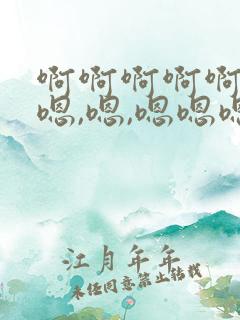 啊啊啊啊啊
嗯,嗯,嗯嗯嗯
江月年年
未经同意禁止转载